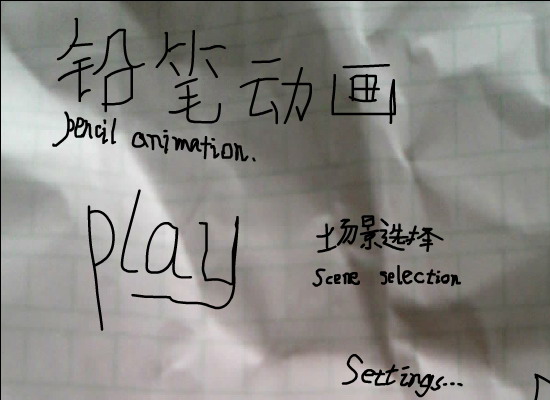 铅笔动画
pencil animation.
play
场景选择
Scene selection
Settings...